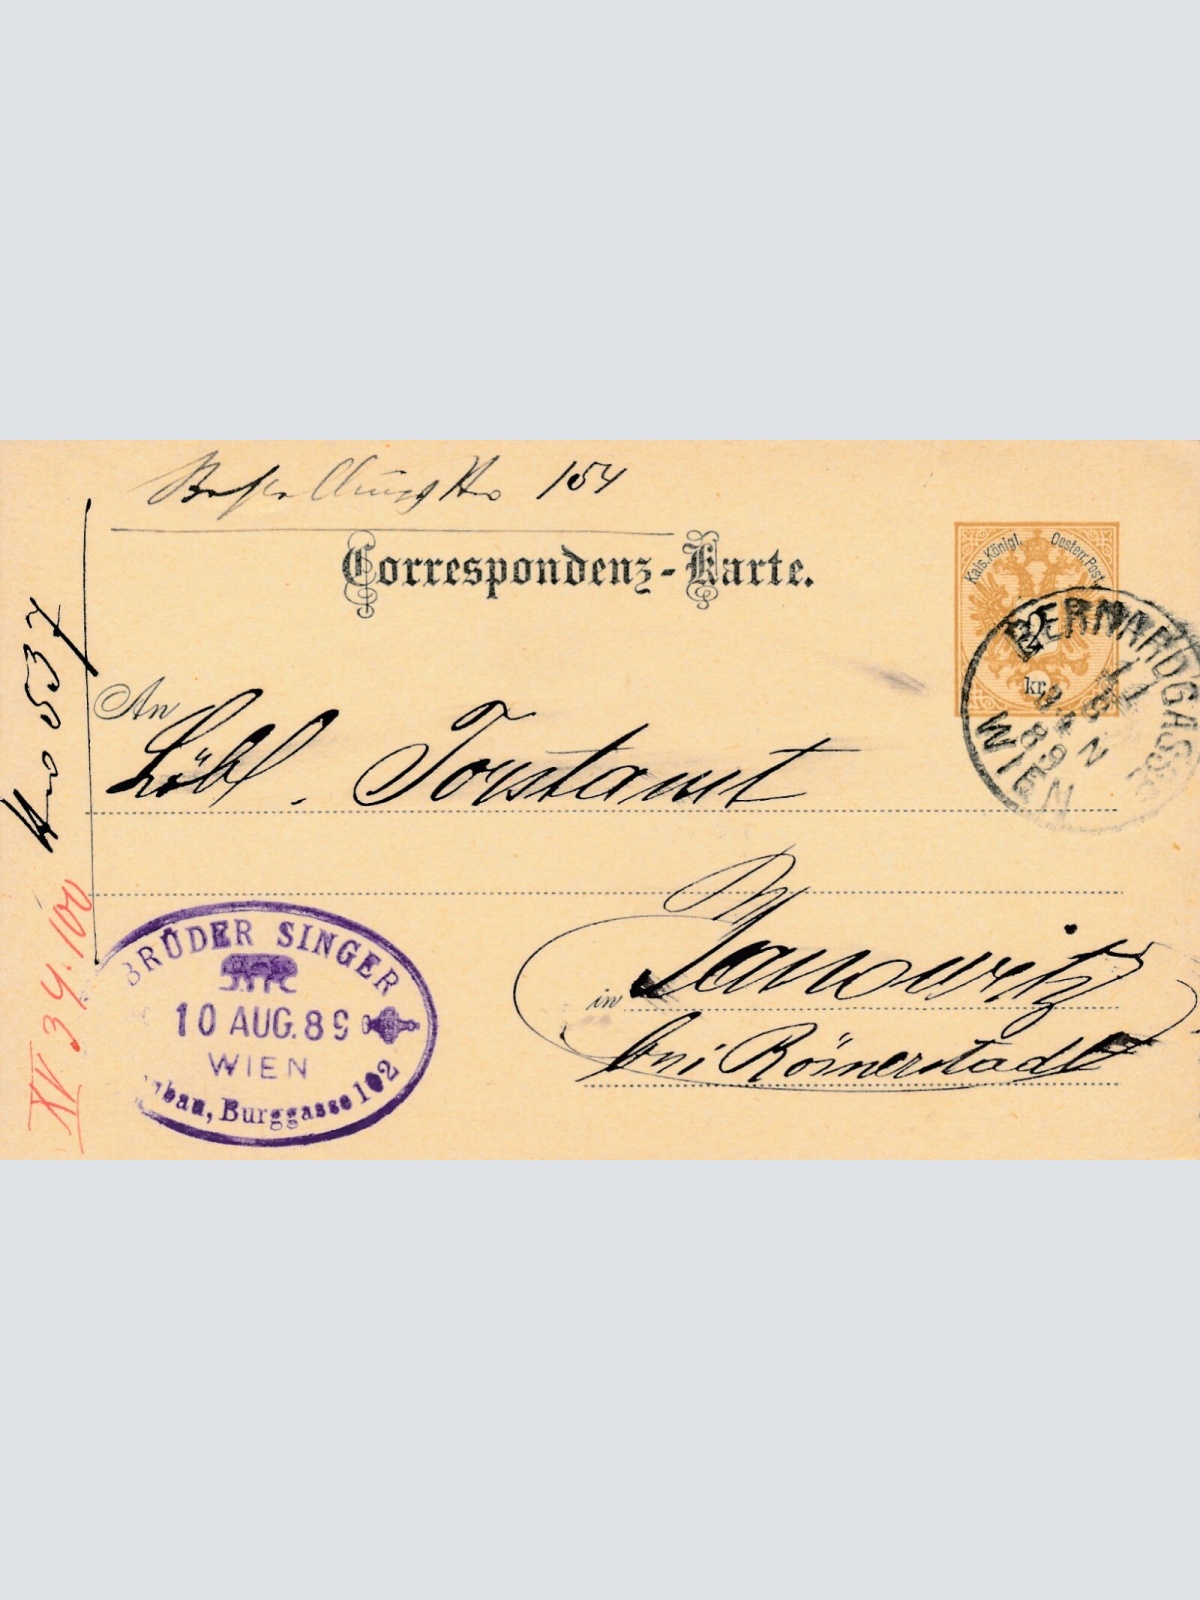 154
Correspondenz-Karte.
Kais. Königl. Oesterr. Post
2
kr.
BERNARDGASSE
11
8
89
N
WIEN
No 537
An
Löbl. Forstamt
in Janowitz
bei Römerstadt
BRÜDER SINGER
10 AUG. 89
WIEN
bau, Burggasse 102
XV. 34. 100